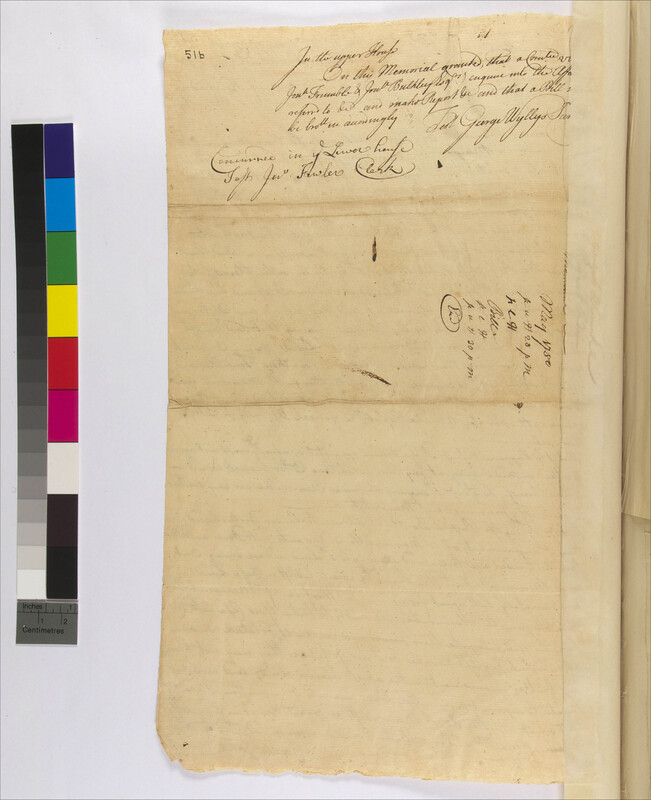 51b
51
In the upper House
On this Memorial granted, that a Comtee
Jonth Trumble & Jonth Bulkley Esqrs enquire into the
referd to &c and make Report &c and that a Bill
be brot in accordingly
Test George Wyllys Secr
Concurred in ye Lower house
Test Jno Fowler Clerk
May 1750
p u H 28 p m
p l H
Bill
p l H
p u H 30 p m
Inches 1
1 2
Centimetres